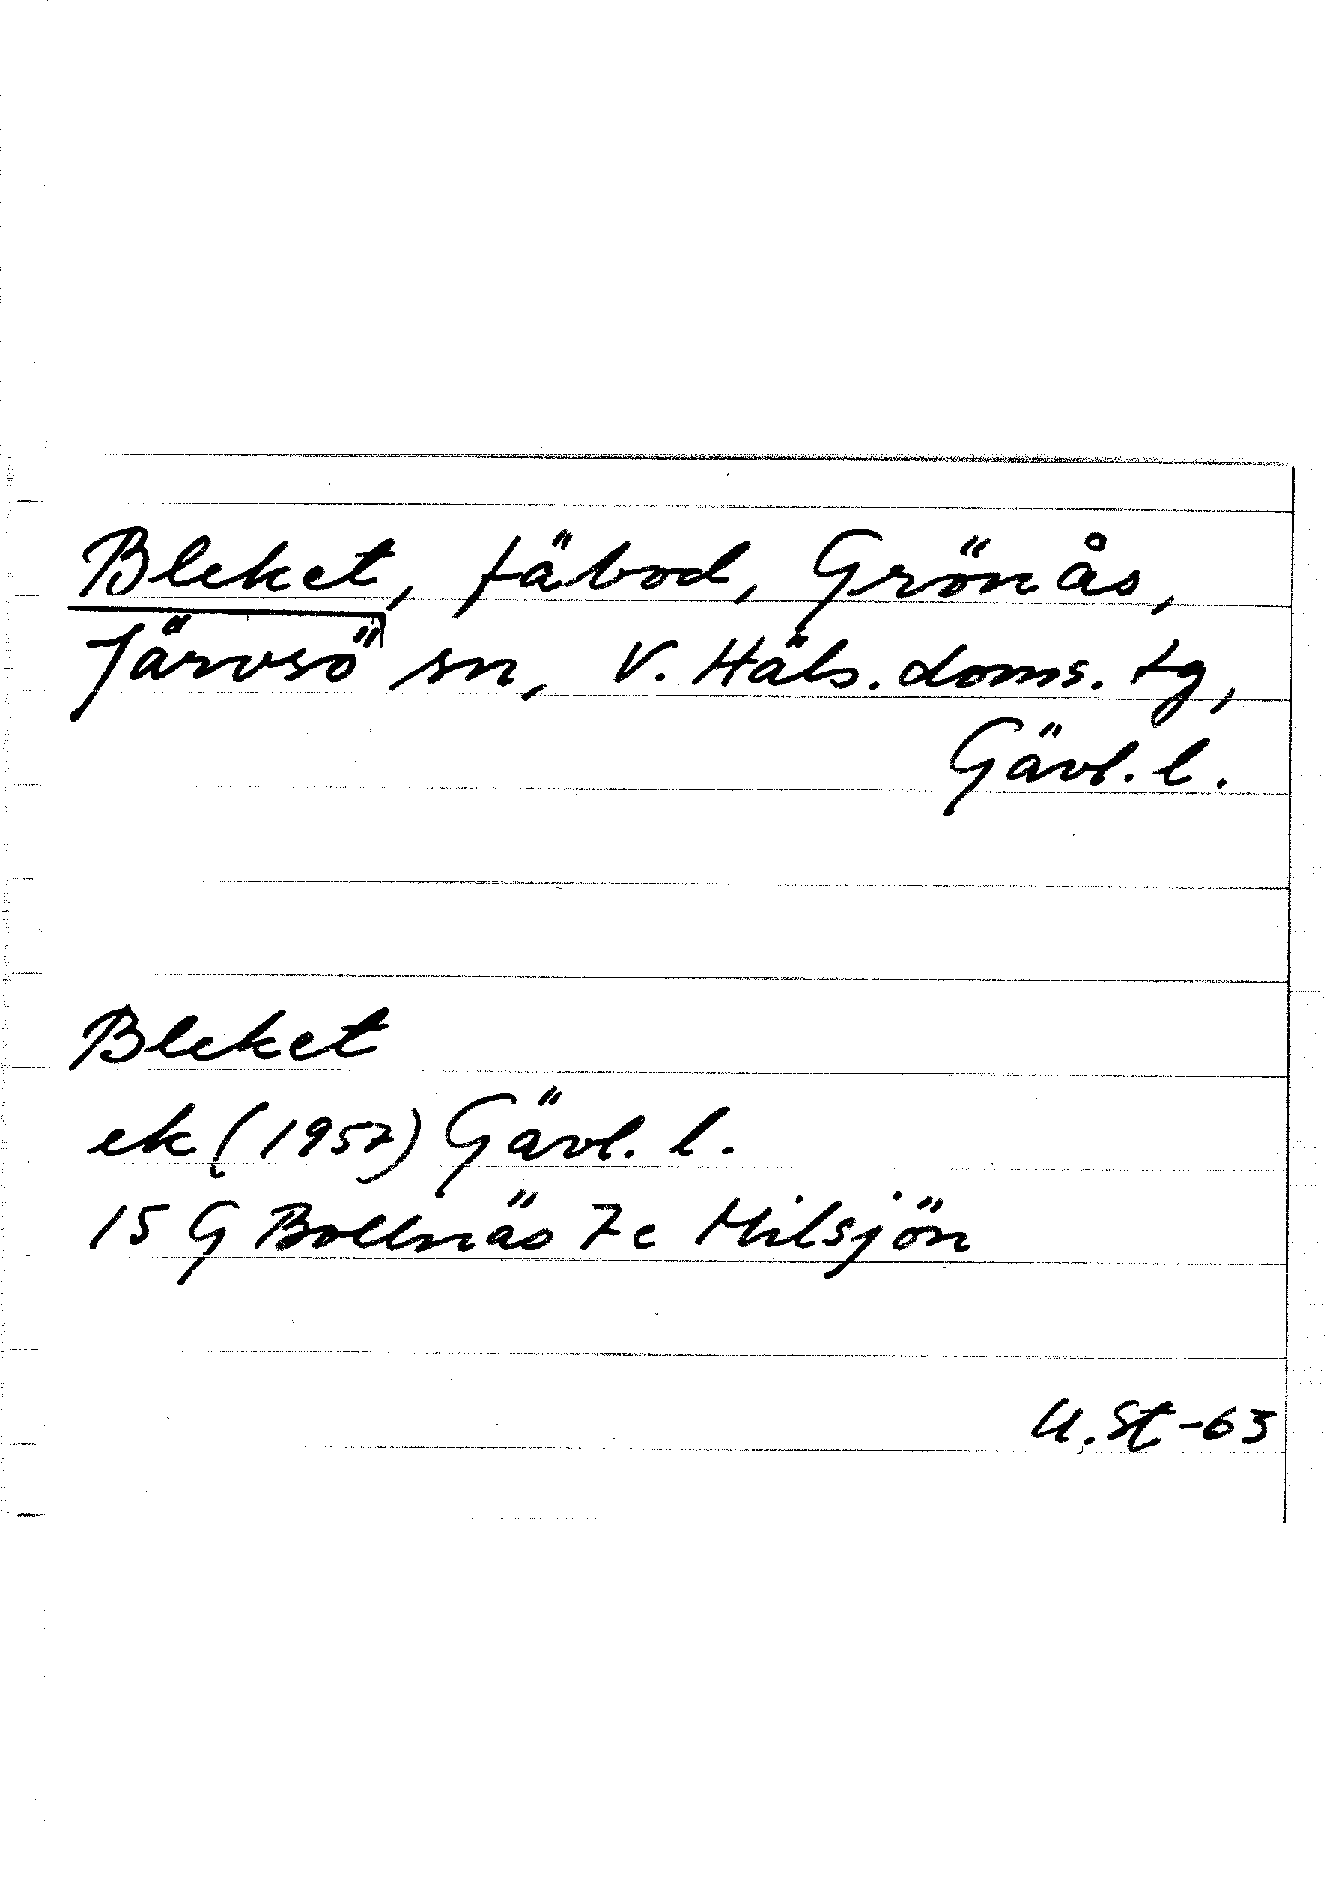 Bleket, fäbod, Grönås,
Järvsö sn, V. Häls. doms. tg,
Gävl. l.
Bleket
ek (1957) Gävl. l.
15 G Bollnäs 7c Milsjön
U. St -63